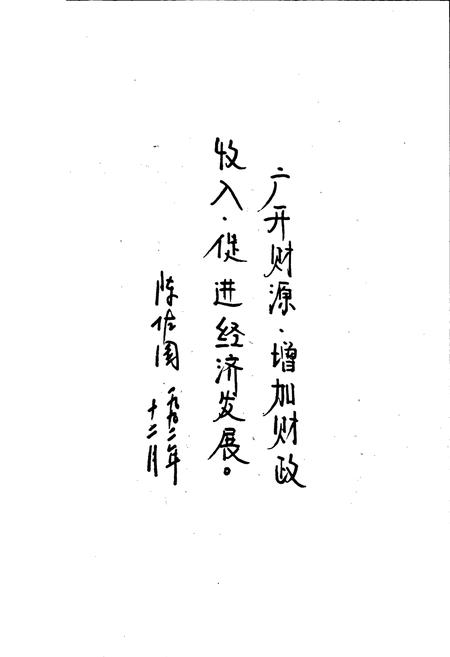 广开财源.增加财政
收入.促进经济发展。
陈佐国
一九九二年
十二月